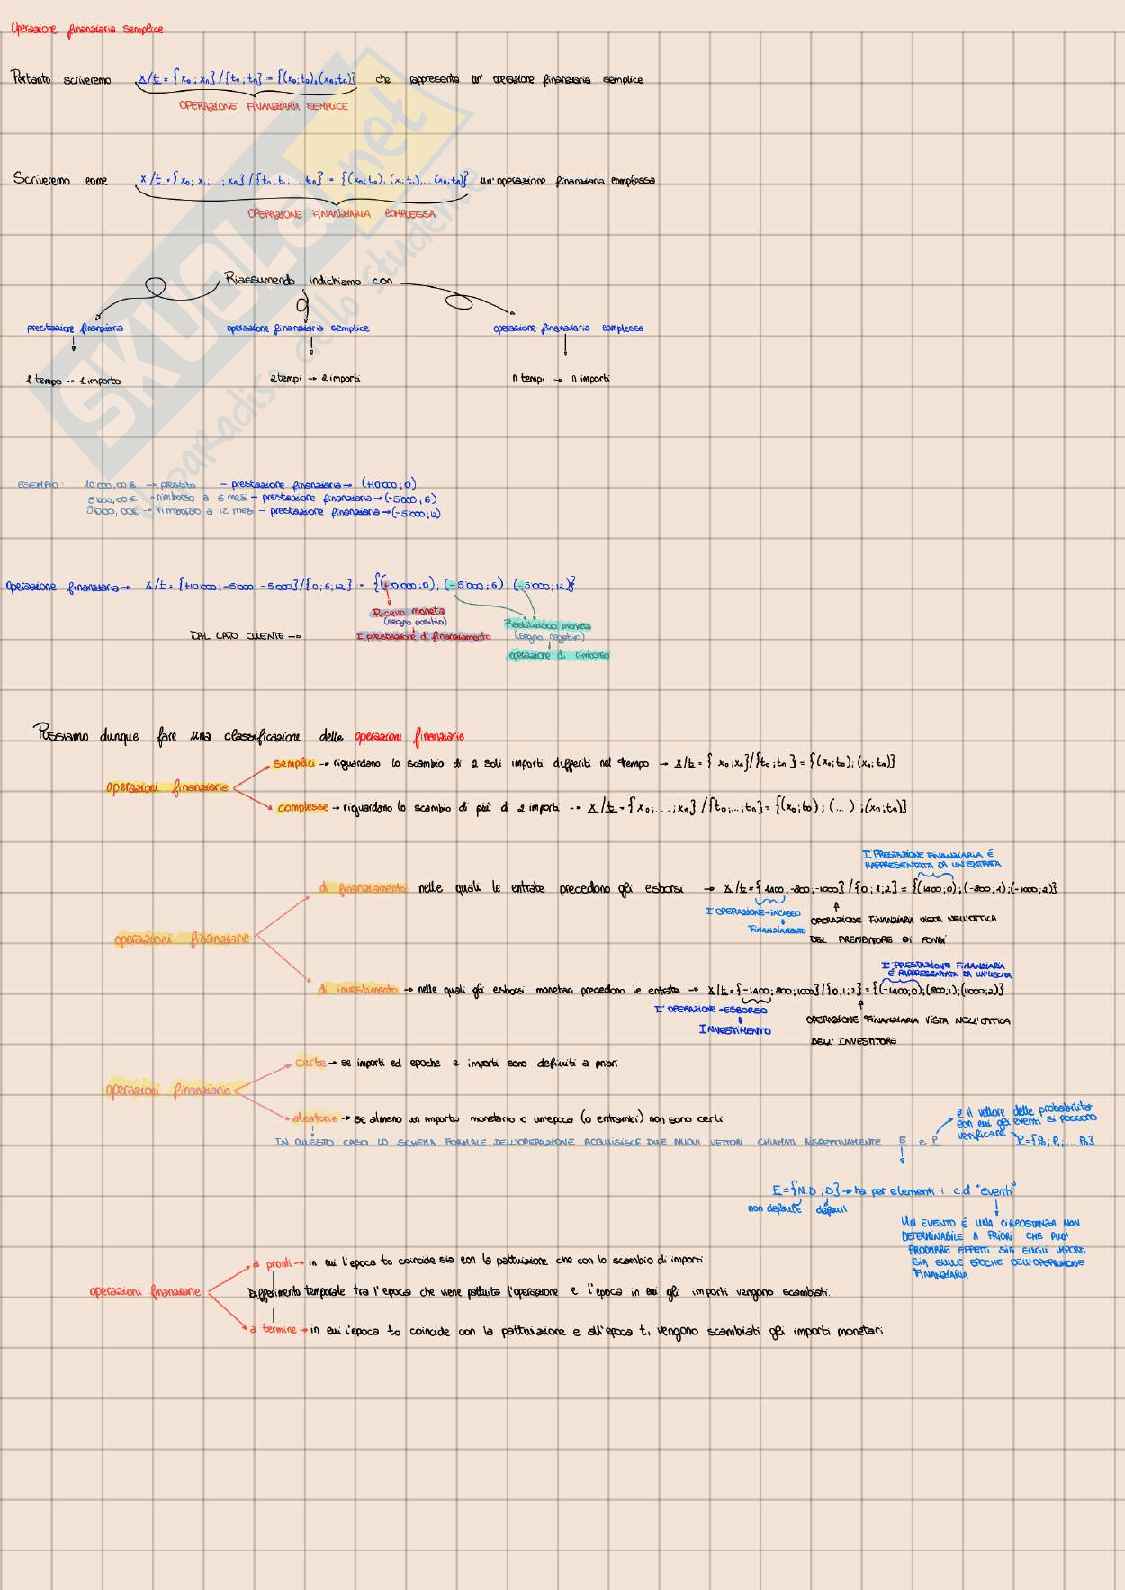 Operazione finanziaria semplice
Pertanto scriveremo x/t = {x0; xn}/{t0; tn} = {(x0;t0),(xn;tn)} che rappresenta un' operazione finanziaria semplice
OPERAZIONE FINANZIARIA SEMPLICE
Scriveremo come x/t = {x0; x1 ... ; xn}/{t0 t1 ... tn} = {(x0;t0), (x1;t1)... (xn;tn)} un'operazione finanziaria complessa
OPERAZIONE FINANZIARIA COMPLESSA
Riassumendo indichiamo con
prestazione finanziaria operazione finanziaria semplice operazione finanziaria complessa
1 tempo → 1 importo 2 tempi → 2 importi n tempi → n importi
ESEMPIO: 10000,00€ → prestito - prestazione finanziaria → (+10000;0)
5000,00€ → rimborso a 6 mesi - prestazione finanziaria → (-5000;6)
5000,00€ → rimborso a 12 mesi - prestazione finanziaria → (-5000;12)
Operazione finanziaria → x/t = {+10000;-5000 -5000}/{0;6;12} = {(+10000;0); (-5000;6) (-5000;12)}
Ricevo moneta
(segno positivo)
Restituisco moneta
(segno negativo)
DAL LATO CLIENTE → I prestazione di finanziamento
operazione di rimborso
Possiamo dunque fare una classificazione delle operazioni finanziarie
operazioni finanziarie
semplici → riguardano lo scambio di 2 soli importi differiti nel tempo → x/t = {x0;xn}/{t0;tn} = {(x0;t0); (xn;tn)}
complesse → riguardano lo scambio di più di 2 importi → x/t = {x0,...;xn}/{t0,...,tn} = {(x0;t0); (...) ;(xn;tn)}
I PRESTAZIONE FINANZIARIA È
RAPPRESENTATA DA UN'ENTRATA
di finanziamento nelle quali le entrate precedono gli esborsi → x/t = {1400,-800;-1000}/{0;1;2} = {(1400;0);(-800,1);(-1000;2)}
I OPERAZIONE-INCASSO
FINANZIAMENTO
OPERAZIONE FINANZIARIA VISTA NELL'OTTICA
DEL PRENDITORE DI FONDI
operazioni finanziarie
I PRESTAZIONE FINANZIARIA
È RAPPRESENTATA DA UN'USCITA
di investimento → nelle quali gli esborsi monetari precedono le entrate → x/t = {-1400;800;1000}/{0,1;2} = {(-1400;0);(800;1);(1000;2)}
I° OPERAZIONE-ESBORSO
INVESTIMENTO
OPERAZIONE FINANZIARIA VISTA NELL'OTTICA
DELL'INVESTITORE
operazioni finanziarie
certe → se importi ed epoche importi sono definiti a priori
aleatorie → se almeno un importo monetario o un'epoca (o entrambi) non sono certi
IN QUESTO CASO LO SCHEMA FORMALE DELL'OPERAZIONE ACQUISISCE DUE NUOVI VETTORI CHIAMATI RISPETTIVAMENTE E e P
è il vettore delle probabilità
con cui gli eventi si possono
verificare P={P0; P1... Pn}
E={N.D, D} → ha per elementi i c.d "eventi"
non default default
UN EVENTO È UNA CIRCOSTANZA NON
DETERMINABILE A PRIORI CHE PUÒ
PRODURRE EFFETTI SIA SUGLI IMPORTI
SIA SULLE EPOCHE DELL'OPERAZIONE
FINANZIARIA
operazioni finanziarie
a pronti → in cui l'epoca t0 coincide sia con la pattuizione che con lo scambio di importi
Differimento temporale tra l'epoca che viene pattuita l'operazione e l'epoca in cui gli importi vengono scambiati.
a termine → in cui l'epoca t0 coincide con la pattuizione e all'epoca t1 vengono scambiati gli importi monetari
SKUOLA.net
paradiso dello studente